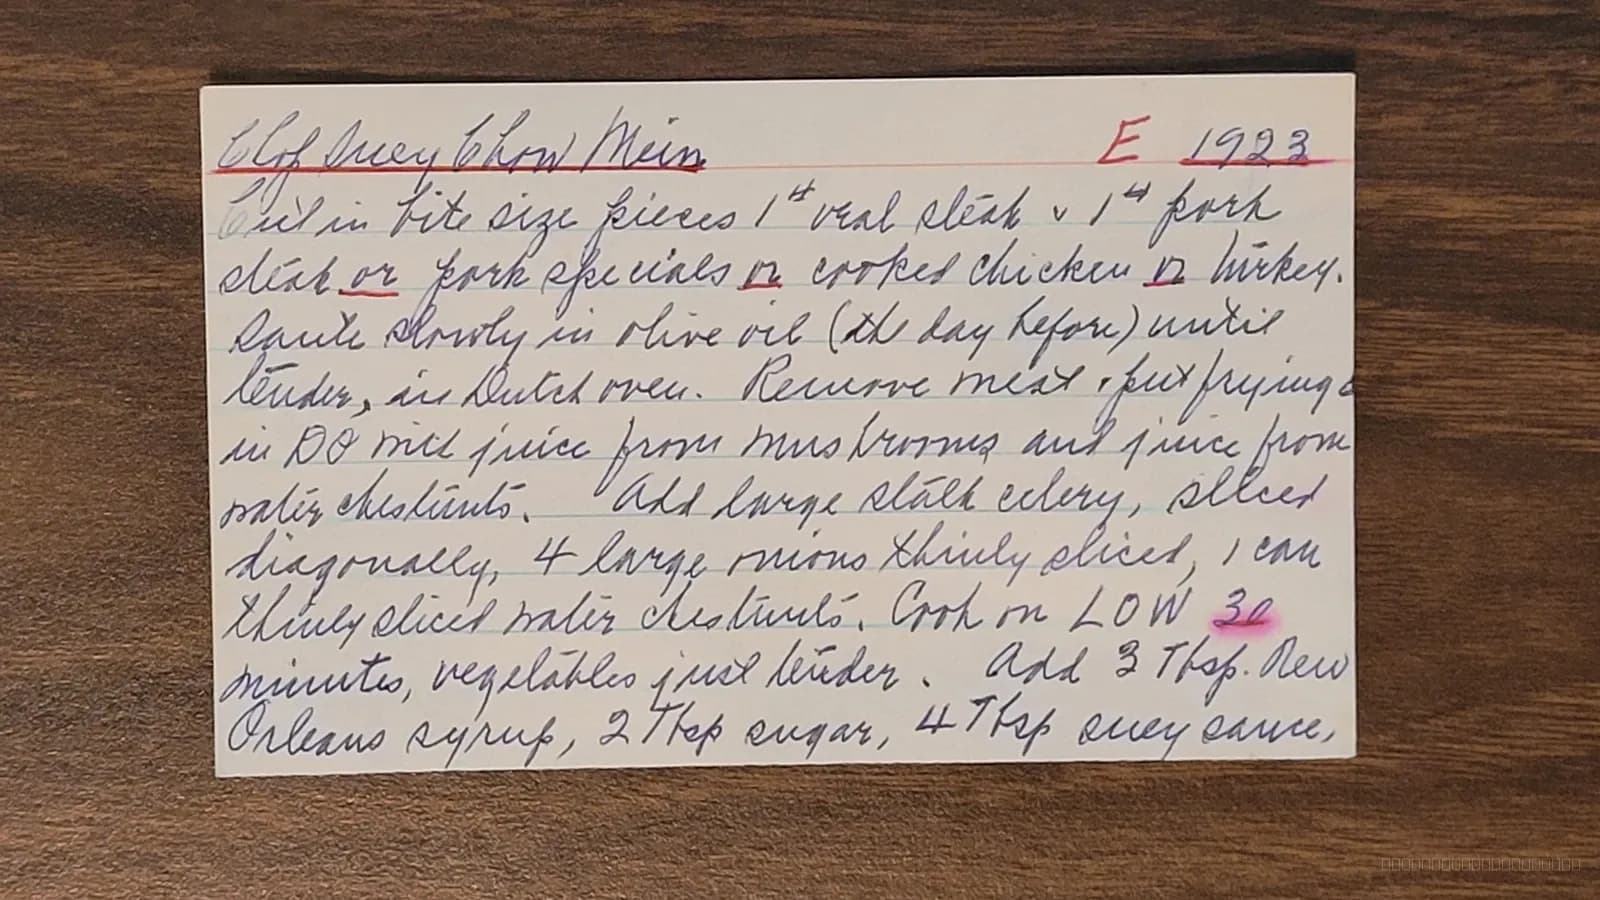 Chop Suey Chow Mein E 1923
Cut in bite size pieces 1# veal steak & 1# pork
steak or pork specials or cooked chicken or turkey.
Saute slowly in olive oil (the day before) until
tender, in Dutch oven. Remove meat & put frying
in DO with juice from mushrooms and juice from
water chestnuts. Add large stalk celery, sliced
diagonally, 4 large onions thinly sliced, 1 can
thinly sliced water chestnuts. Cook on LOW 30
minutes, vegetables just tender. Add 3 Tbsp. New
Orleans syrup, 2 Tbsp sugar, 4 Tbsp suey sauce,